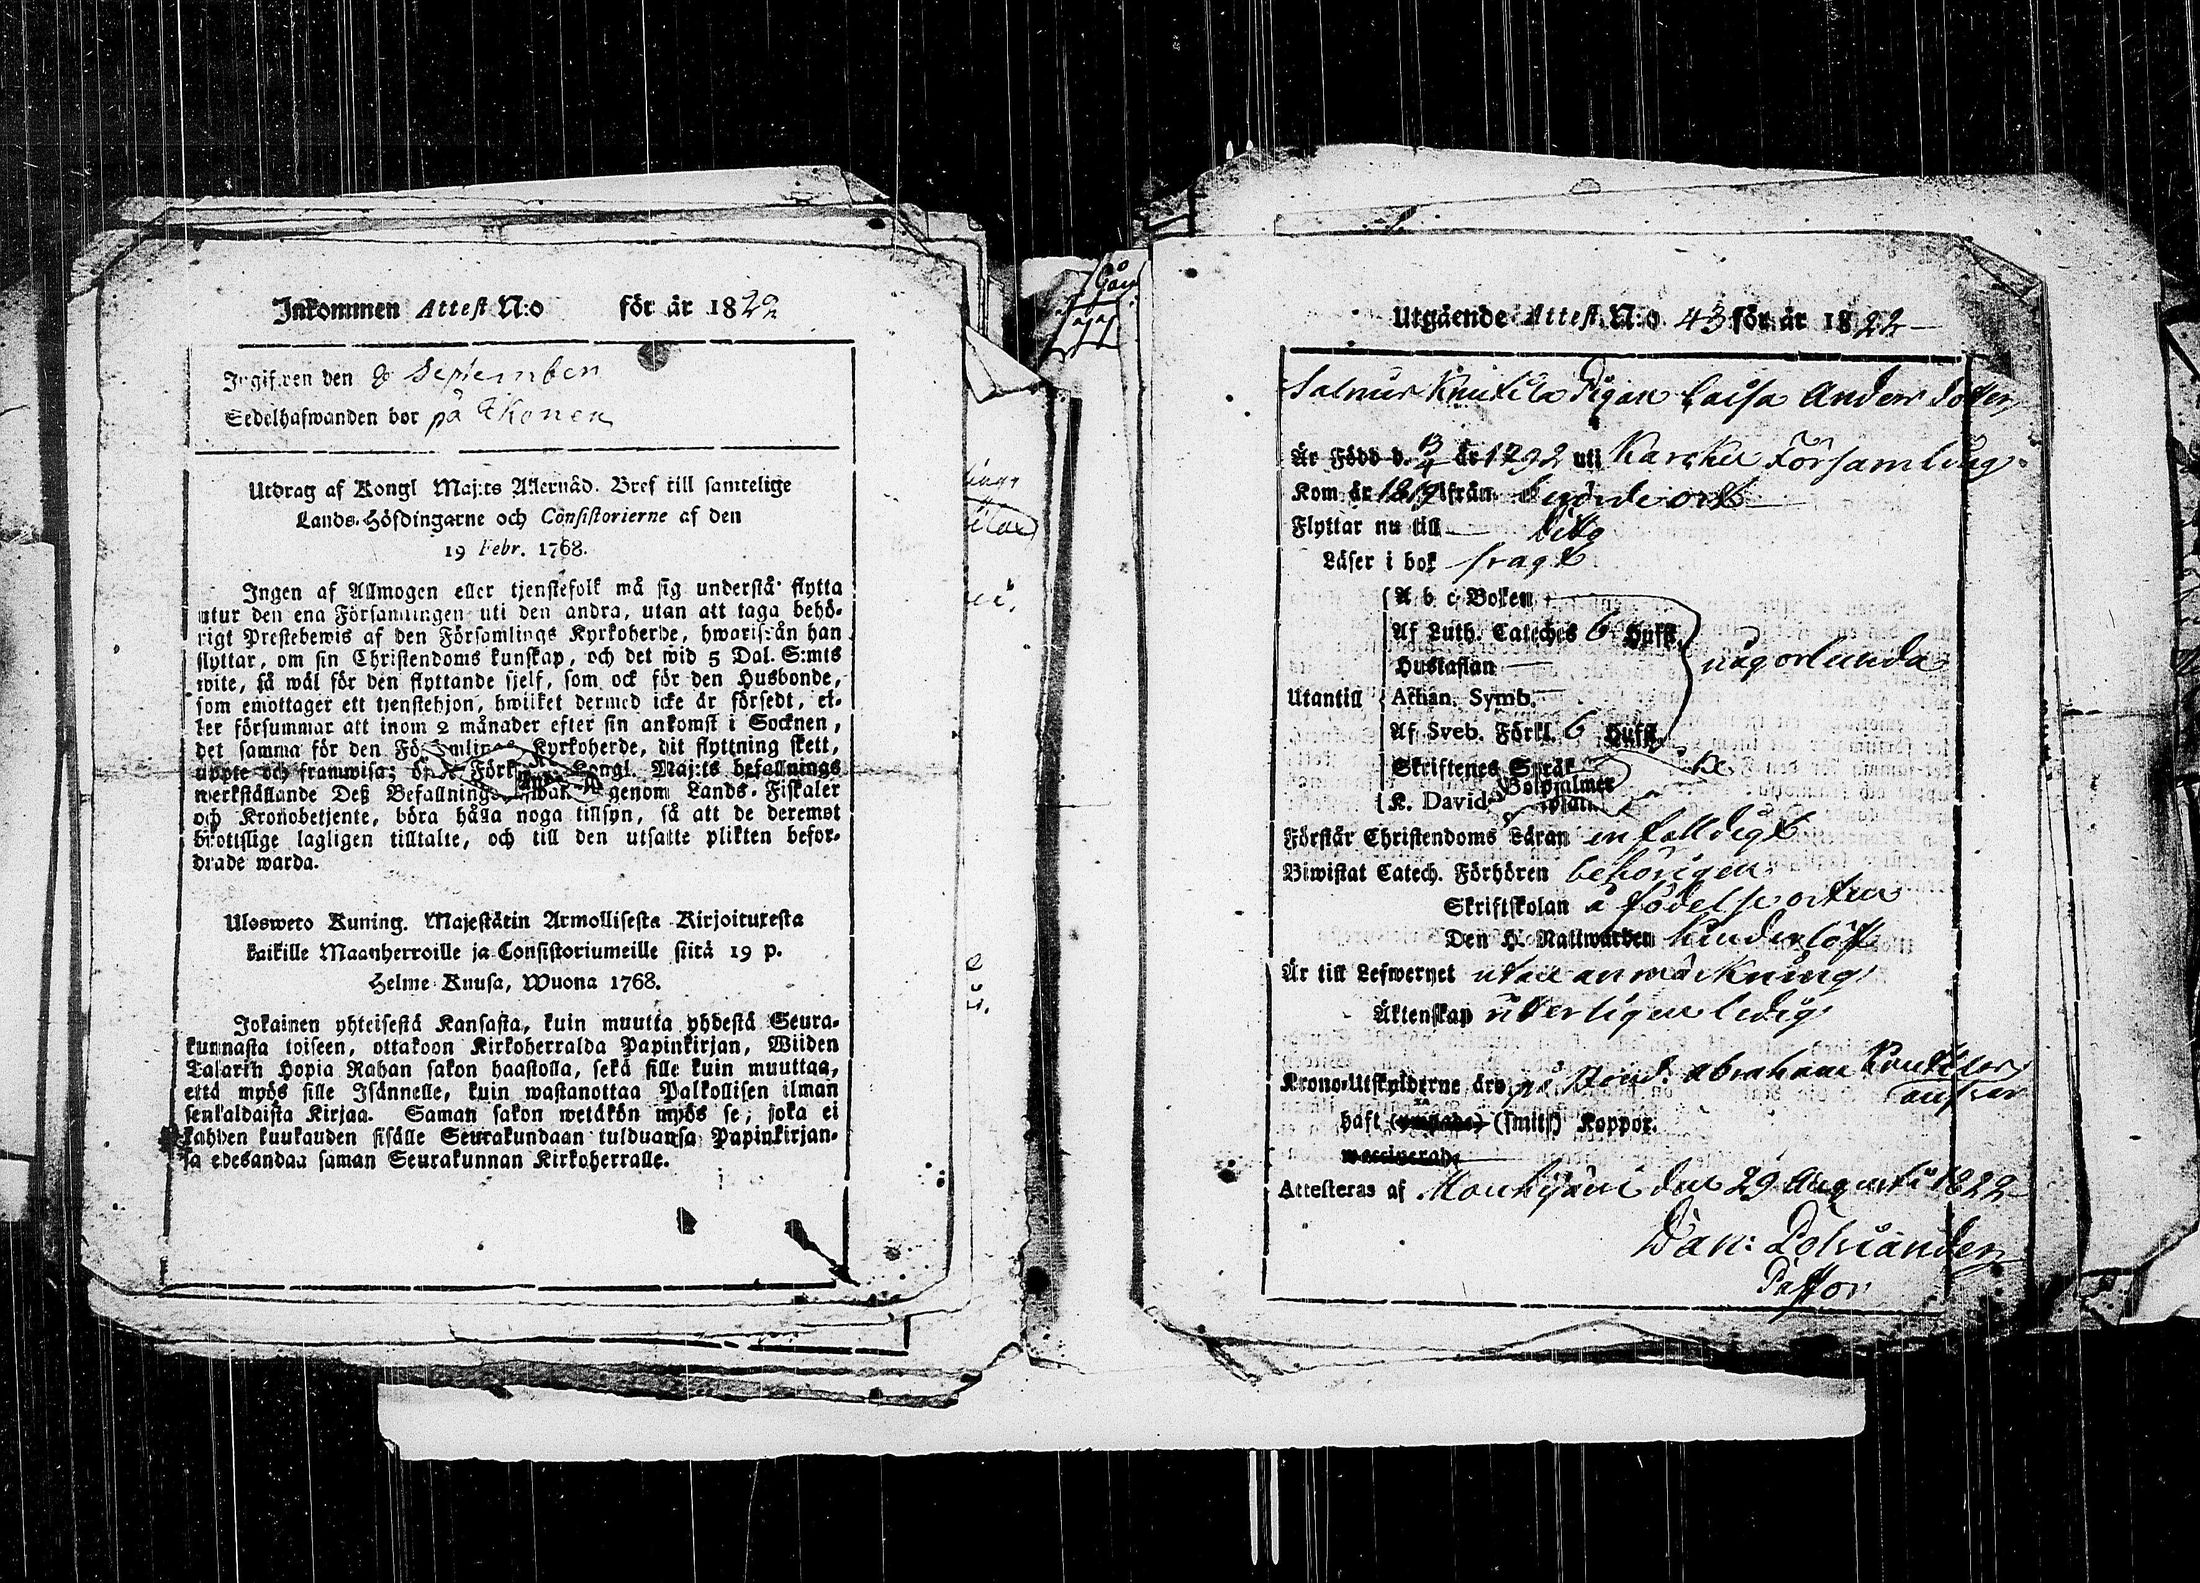 Inkommen Attest N:o för år 1822
Ingifwen den 8 September
Sedelhafwanden bor på
Utdrag af Kongl Maj:ts Allernåd. Bref till samtelige
Lands-Höfdingarne och Consistorierne af den
19 Febr. 1768.
Ingen af Allmogen eller tjenstefolk må sig understå flytta
utur den ena Församlingen uti den andra, utan att taga behö-
rigt Prestebewis af den Församlings Kyrkoherde, hwarifrån han
flyttar, om sin Christendoms kunskap, och det wid 5 Dal. S:mts
wite, så wäl för den flyttande sjelf, som ock för den Husbonde,
som emottager ett tjenstehjon, hwilket dermed icke är försedt, el-
ler försummar att inom 2 månader efter sin ankomst i Socknen,
det samma för den Församlings Kyrkoherde, dit flyttning skett,
uppte och framwisa; Kongl. Maj:ts befallnings
werkställande Deß genom Lands-Fiskaler
och Kronobetjente, böra hålla noga tillsyn, så att de deremot
brottslige lagligen tilltalte, och till den utsatte plikten befor-
drade warda.
Ulosweto Kuning. Majestätin Armollisesta Kirjoituxesta
kaikille Maanherroille ja Consistoriumeille siitä 19 p.
Helme Kuusa, Wuona 1768.
Jokainen yhteisestä Kansasta, kuin muutta yhdestä Seura-
kunnasta toiseen, ottakoon Kirkoherralda Papinkirjan, Wiiden
Talarin Hopia Rahan sakon haastolla, sekä sille kuin muuttaa,
että myös sille Isännelle, kuin wastanottaa Palkollisen ilman
senkaldaista Kirjaa. Saman sakon wetäkön myös se, joka ei
kahden kuukauden sisälle Seurakundaan tulduansa Papinkirjan-
sa edesandaa saman Seurakunnan Kirkoherralle.
Utgående Attest N:o 43 för år 1822
Knutila Pigan Caisa Anders Dotter
Är Född d. år 1792 uti Karcku Församling
Kom år 1819 från
Flyttar nu till dito
Läser i bok svagt
A b c Boken
Af Luth. Cateches 6 Hufst.
Hustaflan
någorlunda
Utantill Athan. Symb.
Af Sveb. Förkl. 6 Hufst.
Skriftenes Språk
K. Davids Botpsalmer
Förstår Christendoms Läran enfalldigt
Biwistat Catech. Förhören behörigen
Skriftskolan å födelseorten
Den H. Nattwarden hinderlöst
Är till Lefwernet utan anmärkning
Äktenskap ytterligen ledig
Krono-Utskylderne äro på Bond. Abraham
haft (smitt) Koppor.
Attesteras af Mouhijärvi den 29 Augusti 1822
Dan: Polviander
Pastor